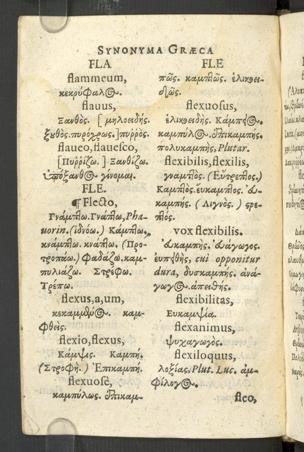 SYNONYMA GRÆCA
FLA
flammeum,
κεκρύφαλος.
flauus,
Ξανθός. [μηλοειδής.
ξυθὸς. πυῤῥόχρως.] πυῤῥός.
flaueo, flauesco,
[Πυῤῥίζω.] Ξανθίζω.
ὑπόξανθος γίνομαι.
FLE.
¶ Flecto,
Γνάμπτω. Γνάπτω, Pha-
uorin. (ἰδνόω.) Κάμπτω,
κνάμπτω. κνάπτω. (Προ-
τροπάω.) Φαδάζω. καμ-
πυλιάζω. Στρέφω.
Τρέπω.
flexus, a, um,
κεκαμμένος. καμ-
φθείς.
flexio, flexus,
Κάμψις. Καμπή.
(Στροφή.) Ἐπικαμπή.
flexuosè,
καμπύλως. ἐπικαμ-
FLE
πῶς. καμπτῶς. ἑλικοει-
δῶς.
flexuosus,
ἑλικοειδής. Καμπτός.
καμπύλος. ἐπικαμπής.
πολυκαμπής, Plutar.
flexibilis, flexilis,
γναμπτός. (Εὐτρεπτος.)
Καμπτός. εὔκαμπτος. εὐ-
καμπής. (Λυγνός.) στρε-
πτός.
vox flexibilis.
εὐκαμπής. εὐάγωγος.
εὐπειθής, cui opponitur
dura, δυσκαμπής. ἀνά-
γωγος. ἀπειθής.
flexibilitas,
Ευκαμψία.
flexanimus,
ψυχαγωγός.
flexiloquus,
λοξίας. Plut. Luc. ἀμ-
φίλογος.
fleo,